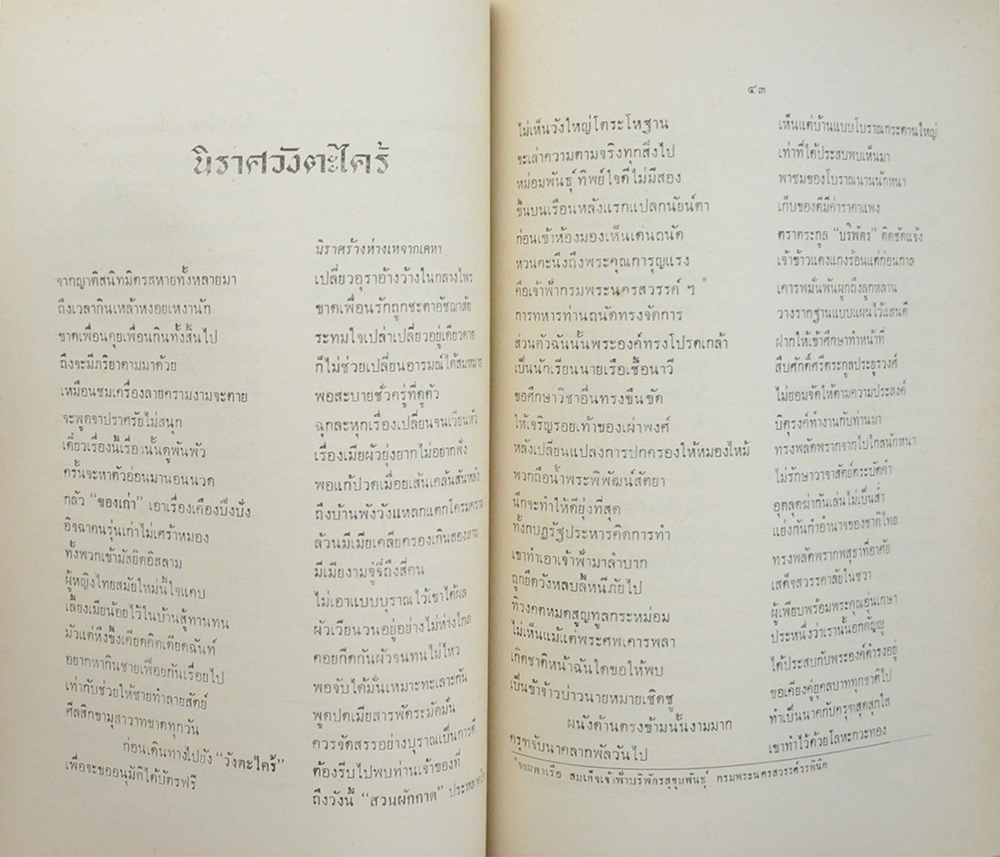 นิราศวังตะไคร้
นิราศร้างห่างเหจากเคหา
จากญาติสนิทมิตรสหายทั้งหลายมา เปลี่ยวอุราอ้างว้างในกลางไพร
ถึงเวลากินเหล้าหงอยเหงานัก ขาดเพื่อนรักถูกชะตาอัชฌาสัย
ขาดเพื่อนคุยเพื่อนกินทั้งสิ้นไป ระทมใจเปล่าเปลี่ยวอยู่เดียวดาย
ถึงจะมีภริยาตามมาด้วย ก็ไม่ช่วยเปลี่ยนอารมณ์ได้สมหมาย
เหมือนชมเครื่องลายครามงามจะตาย พอสะบายชั่วครู่ที่ดูตัว
จะพูดจาปราศรัยไม่สนุก ฉุกละหุกเรื่องเปลี่ยนจนเวียนหัว
เดี๋ยวเรื่องนี้เรื่องนั้นดูพันพัว เรื่องเมียผัวยุ่งยากไม่อยากฟัง
ครั้นจะหาตัวอ่อนมานอนนวด พอแก้ปวดเมื่อยเส้นเคล้นสันหลัง
กลัว “ของเก่า” เอาเรื่องเคืองปึ่งปั่ง ถึงบ้านพังวังแหลกแตกโครมคราม
อิจฉาคนรุ่นเก่าไม่เศร้าหมอง ล้วนมีเมียเคลียครองเกินสองสาม
ทั้งพวกเข้ามัสยิดอิสลาม มีเมียงามจู่จี๋ถึงสี่คน
ผู้หญิงไทยสมัยใหม่นี้ใจแคบ ไม่เอาแบบบุราณไว้เขาได้ผล
เลี้ยงเมียน้อยไว้ในบ้านสู้ทานทน ผัวเวียนวนอยู่อย่างไม่ห่างไกล
มัวแต่หึงขึ้งเคียดคิดเดียดฉันท์ คอยกีดกันผัวจนทนไม่ไหว
อยากหากินชายเฟือยกันเรื่อยไป พอจับได้มั่นเหมาะทะเลาะกัน
เท่ากับช่วยให้ชายทำลายสัตย์ พูดปดเมียสารพัดระมัดมั่น
ศีลสิกขามุสาวาทขาดทุกวัน ควรจัดสรรอย่างบุราณเป็นการดี
ก่อนเดินทางไปยัง “วังตะไคร้” ต้องรีบไปพบท่านเจ้าของที่
เพื่อจะขออนุมัติได้บัตรฟรี ถึงวังนี้ “สวนผักกาด”
๔๓
ไม่เห็นวังใหญ่โตระโหฐาน เห็นแต่บ้านแบบโบราณกระดานใหญ่
จะเล่าความตามจริงทุกสิ่งไป เท่าที่ได้ประสบพบเห็นมา
หม่อมพันธุ์ทิพย์ใจดีไม่มีสอง พาชมของโบราณนานนักหนา
ขึ้นบนเรือนหลังแรกแปลกนัยน์ตา เก็บของดีมีค่าราคาแพง
ก่อนเข้าห้องมองเห็นเด่นถนัด ตราตระกูล “บริพัตร” ติดชัดแจ้ง
หวนคะนึงถึงพระคุณการุญแรง เจ้าข้าวแดงแกงร้อนแต่ก่อนกาล
คือเจ้าฟ้ากรมพระนครสวรรค์ ฯ* เคารพมั่นพันผูกถึงลูกหลาน
การทหารท่านถนัดทรงจัดการ วางรากฐานแบบแผนไว้แสนดี
ส่วนตัวฉันนั้นพระองค์ทรงโปรดเกล้า ฝากให้เข้าศึกษาทำหน้าที่
เป็นนักเรียนนายเรือเชื้อนาวี สืบศักดิ์ศรีตระกูลประยูรวงศ์
ขอศึกษาวิชาอื่นทรงขืนขัด ไม่ยอมจัดให้ตามความประสงค์
ให้เจริญรอยเท้าของเผ่าพงศ์ บิตุรงค์ทำงานกับท่านมา
หลังเปลี่ยนแปลงการปกครองให้หมองไหม้ ทรงพลัดพรากจากไปไกลนักหนา
พวกถือน้ำพระพิพัฒน์สัตยา ไม่รักษาวาจาสัตย์ตระบัดคำ
นึกจะทำให้ดียุ่งที่สุด อุตลุดฆ่ากันเล่นไม่เป็นส่ำ
ทั้งกบฏรัฐประหารคิดการทำ แย่งกันกำอำนาจของชาติไทย
เขาทำเอาเจ้าฟ้ามาลำบาก ทรงพลัดพรากพสุธาที่อาศัย
ถูกยึดวังหลบลี้หนีภัยไป เสด็จสวรรคาลัยในชวา
ทิวงคตหมดสูญทูลกระหม่อม ผู้เพียบพร้อมพระคุณอุ่นเกษา
ไม่เห็นแม้แต่พระศพเคารพลา ประหนึ่งว่าเรานั้นอกตัญญู
เกิดชาติหน้าฉันใดขอให้พบ ได้ประสบกับพระองค์ดำรงอยู่
เป็นข้าจ้าวบ่าวนายหมายเชิดชู ขอเคียงคู่ยุคลบาททุกชาติไป
ผนังด้านตรงข้ามนั้นงามมาก ทำเป็นนาคกับครุฑสุดสุกใส
ครุฑจับนาคลากพัลวันไป เขาทำไว้ด้วยโลหะกะไหล่ทอง
*จอมพลเรือ สมเด็จเจ้าฟ้าบริพัตรสุขุมพันธุ์ กรมพระนครสวรรค์วรพินิต